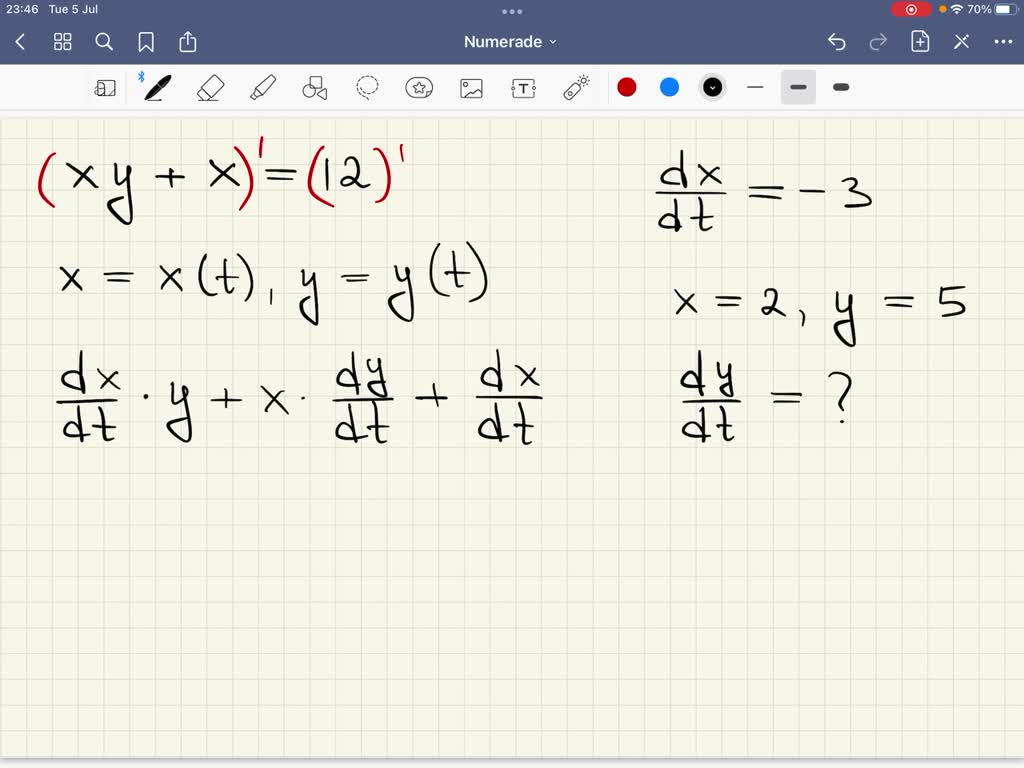 23:46 Tue 5 Jul 70%
Numerade
T
(xy + x)' = (12)'
x = x(t), y = y(t)
dx/dt · y + x · dy/dt + dx/dt
dx/dt = -3
x = 2, y = 5
dy/dt = ?